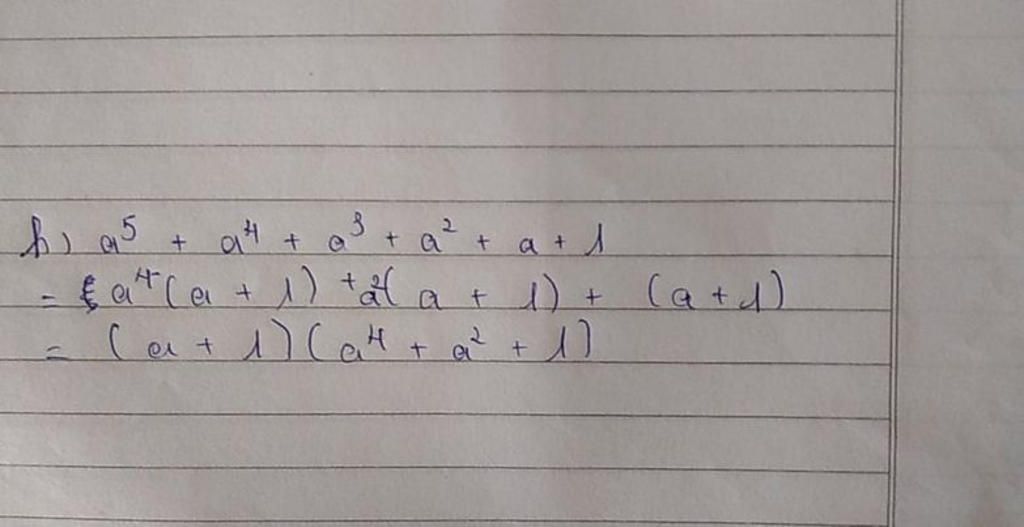 h) a⁵ + a⁴ + a³ + a² + a + 1
= a⁴(a + 1) + a²(a + 1) + (a + 1)
= (a + 1)(a⁴ + a² + 1)